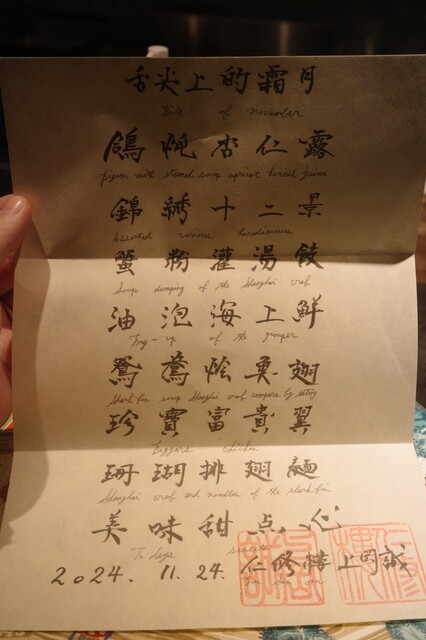 舌尖上的霜月
Bite of november
鴿炖杏仁露
pigeon with steamed soup apricot kernel juice
錦繡十二景
Assorted various horsdoeuvres
蟹粉灌湯餃
Soup dumping of the Shanghai crab
油泡海上鮮
Fry-up of the grouper
鴛鴦燴奐翅
Shark fin soup Shanghai crab compare by eating
珍寶富貴翼
Beggars chicken
珊瑚排翅麵
Shanghai crab and noodles of the shark fin
美味甜点心
To days
2024. 11. 24. 仁修樓上岡誠